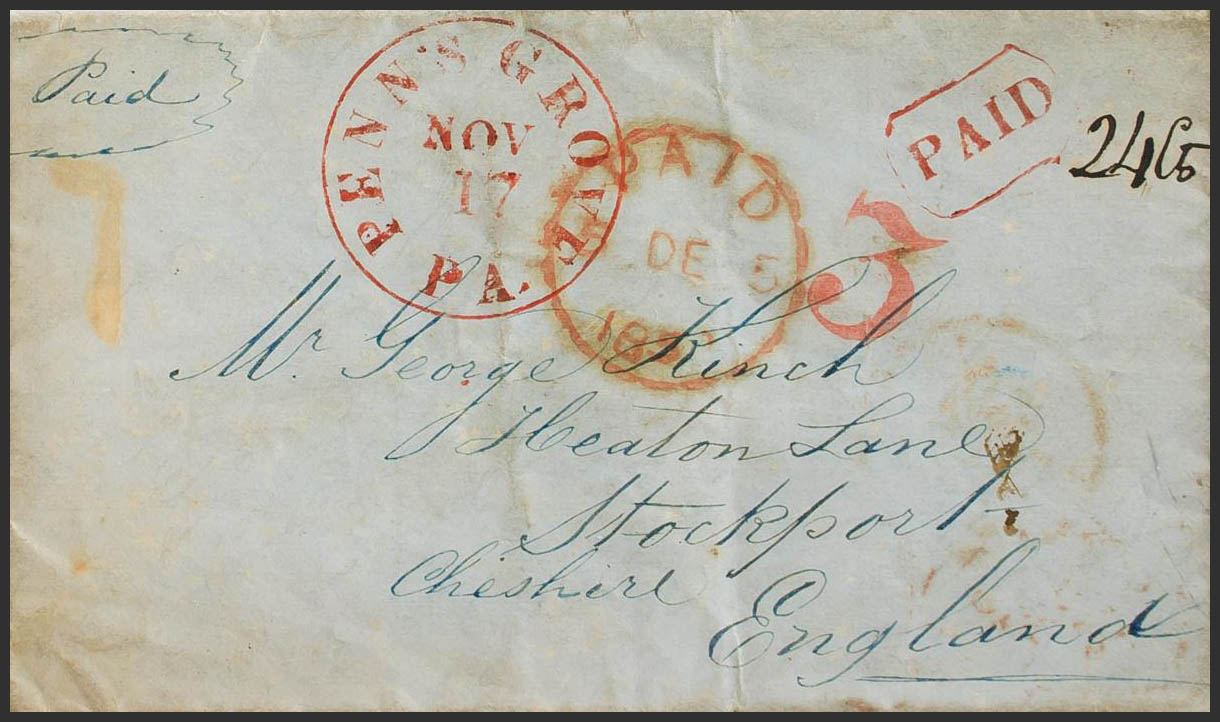 Paid
PENN'S GROVE
NOV
17
PA.
PAID
DE 5
PAID
24
3
Mr. George Kinch
Heaton Lane
Stockport
Cheshire
England